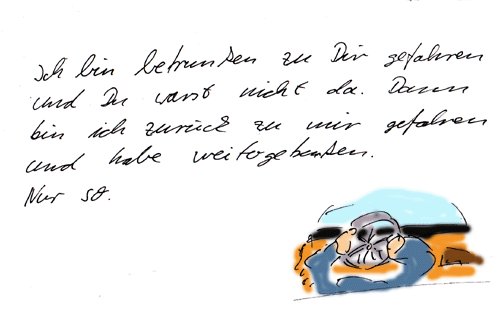 Ich bin betrunken zu Dir gefahren
und Du warst nicht da. Dann
bin ich zurück zu mir gefahren
und habe weitergetrunken.
Nur so.